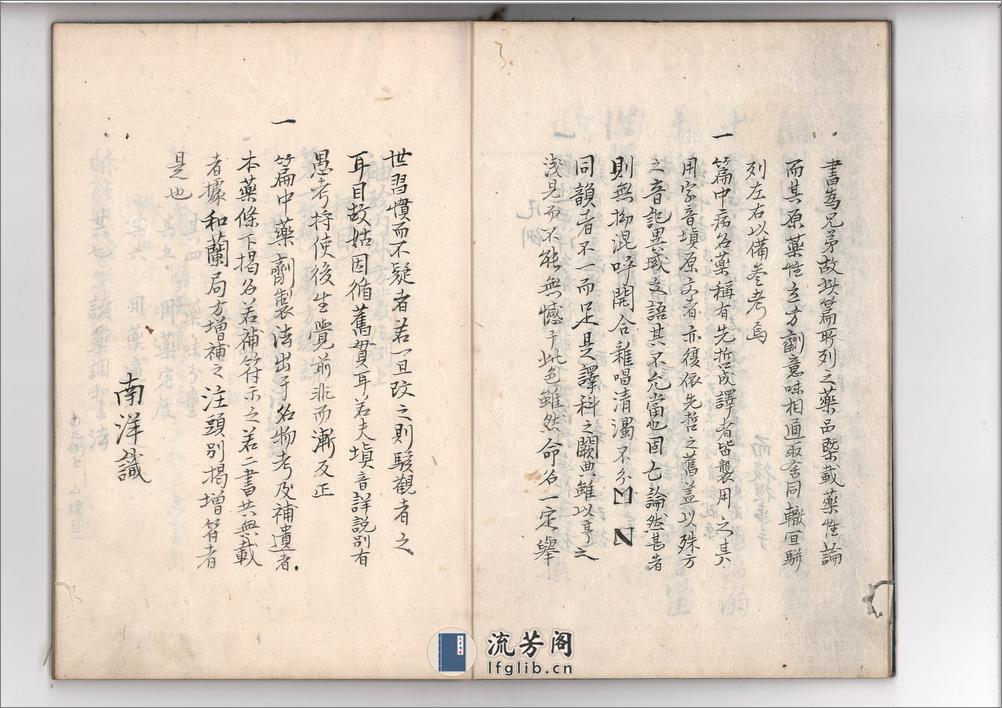 書為兄弟故此篇所列之藥品槩載藥性論
而其原藥性立方劑意味相通取舍同轍宜駢
列左右以備叅考焉
一
篇中病名藥稱有先哲成譯者皆襲用之其
用字音填原文者亦復依先哲之舊蓋以殊方
之音記異域之語其不允當也固亡論然甚者
則無拗混呼開合雜唱清濁不分M N
同韻者不一而足是譯科之闕典雖以亨之
淺見而不能無憾于此也雖然命名一定舉
世習慣而不疑者若一旦改之則駭觀者之
耳目故姑因循舊貫耳若夫填音詳說別有
愚考將使後生覺前非而漸反正
一
篇中藥劑製法出于名物考及補遺者
本藥條下揭名若補符示之若二書共無載
者據和蘭局方增補之注頭別揭增符者
是也
南洋識
流芳阁
lfglib.cn